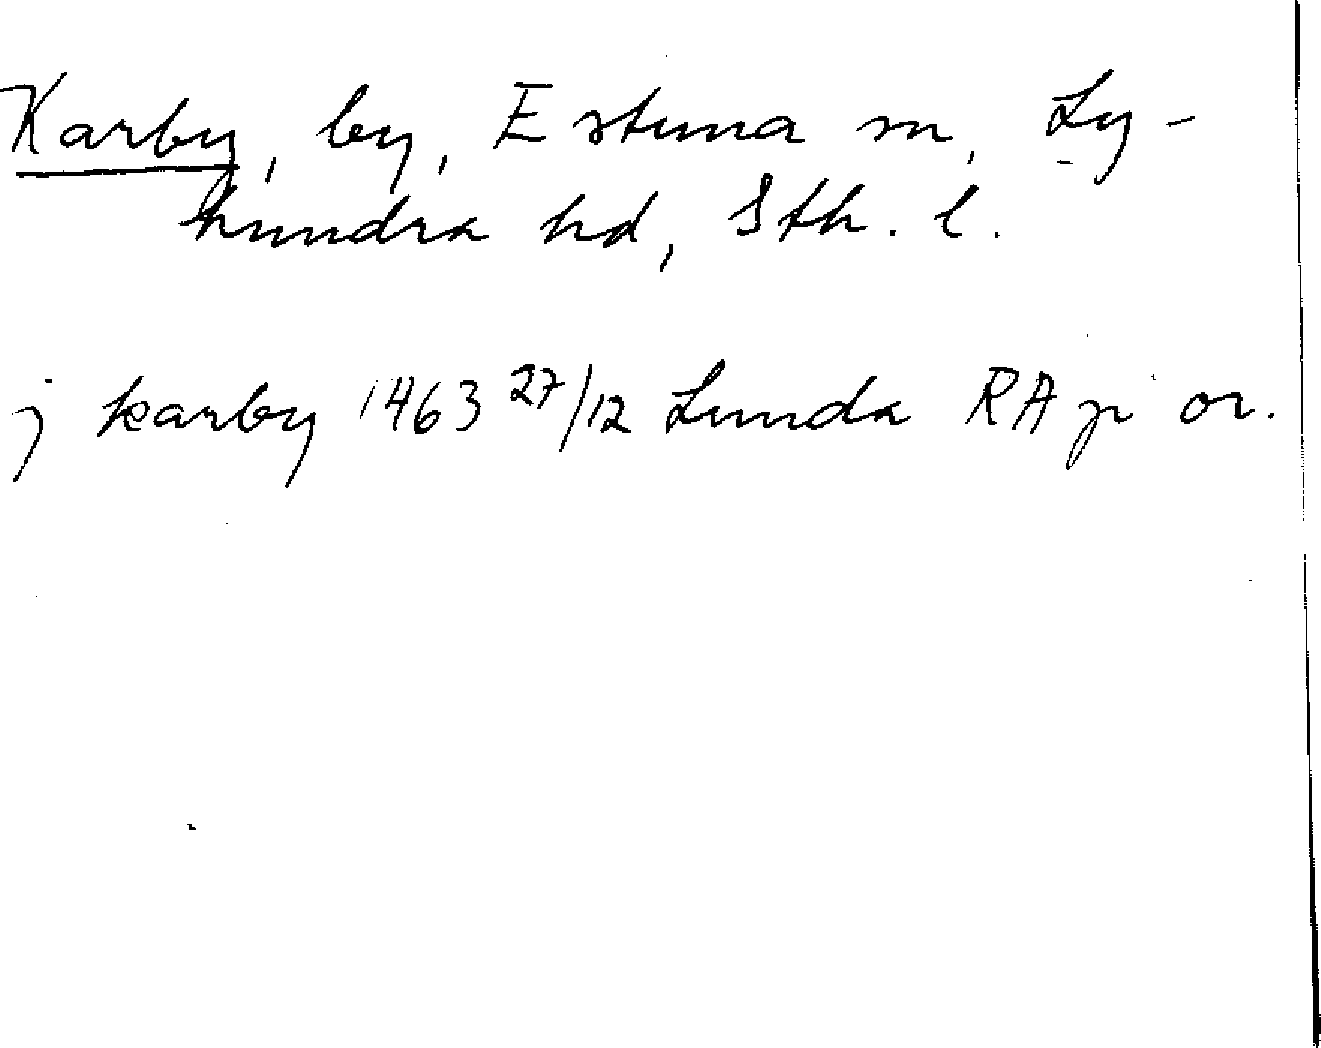 Karby, by, Estuna sn, Ly-
hundra hd, Sth. l.
j karby 1463 27/12 Lunda RAp or.